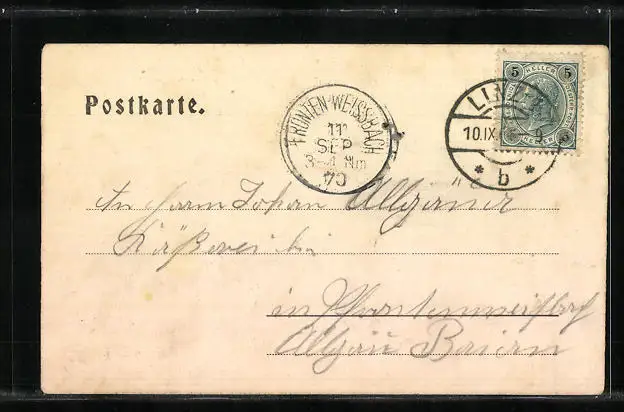 Postkarte.
PFRONTEN-WEISSBACH
11
SEP
3-4 Nm
LINZ
10.IX.
9
* b *
5 5
HELLER
An Herrn Johan Allgäuer
Käßerei bei
in Pfrontenweißbach
Algäu Baiern